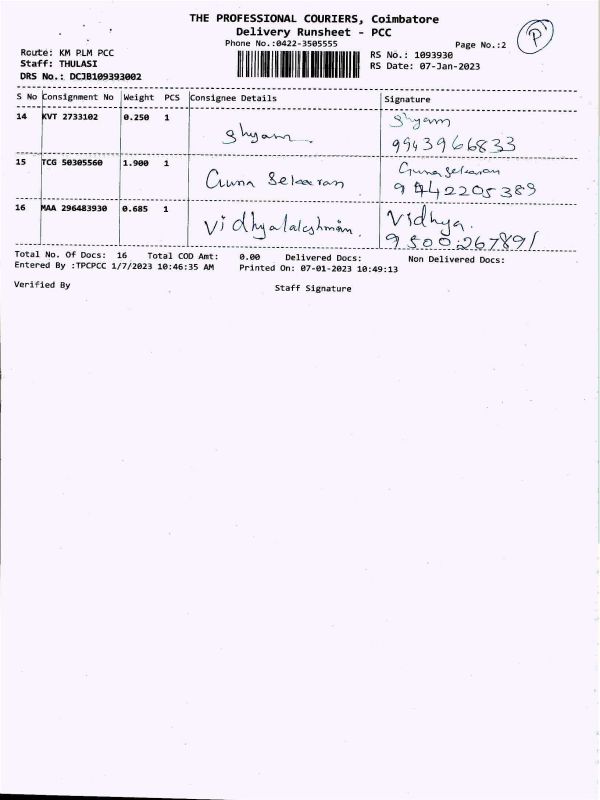 THE PROFESSIONAL COURIERS, Coimbatore
Delivery Runsheet - PCC
Phone No.:0422-3505555
Page No.:2
P
Route: KM PLM PCC
Staff: THULASI
DRS No.: DCJB109393002
RS No.: 1093930
RS Date: 07-Jan-2023
S No Consignment No Weight PCS Consignee Details Signature
14 KVT 2733102 0.250 1 Shyam Shyam
9943966833
15 TCG 50305560 1.900 1 Guna Sekaran Guna Sekaran
9442205389
16 MAA 296483930 0.685 1 Vidhyalakshman Vidhya.
9500267891
Total No. Of Docs: 16 Total COD Amt: 0.00 Delivered Docs: Non Delivered Docs:
Entered By :TPCPCC 1/7/2023 10:46:35 AM Printed On: 07-01-2023 10:49:13
Verified By Staff Signature